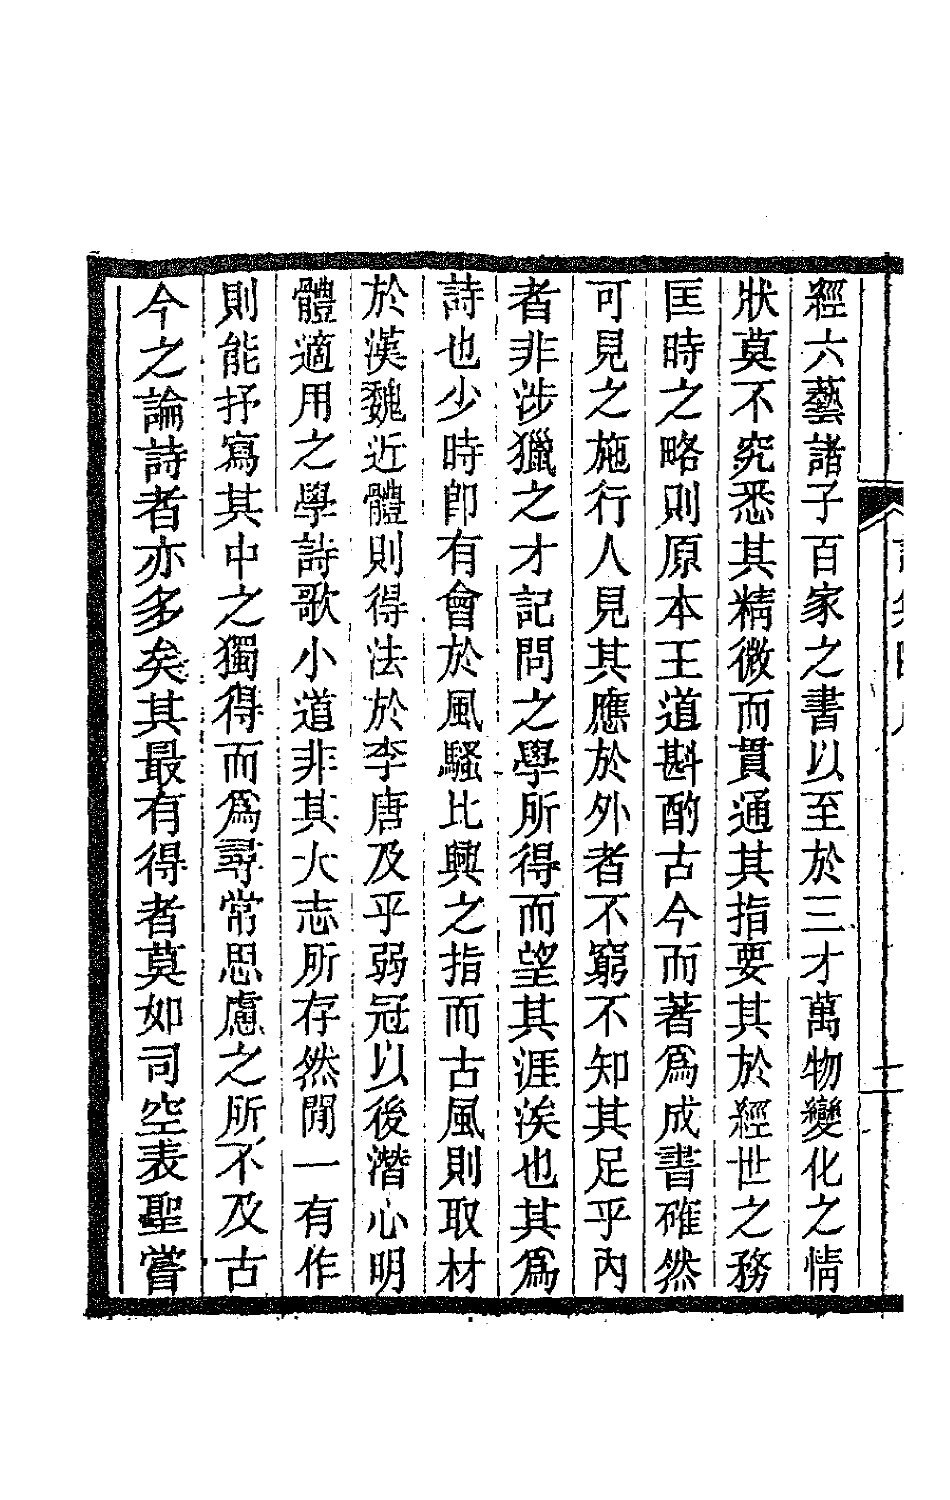 經六藝諸子百家之書以至於三才萬物變化之情
狀莫不究悉其精微而貫通其指要其於經世之務
匡時之略則原本王道斟酌古今而著爲成書確然
可見之施行人見其應於外者不窮不知其足乎內
者非涉獵之才記問之學所得而望其涯涘也其爲
詩也少時卽有會於風騷比興之指而古風則取材
於漢魏近體則得法於李唐及乎弱冠以後潛心明
體適用之學詩歌小道非其大志所存然閒一有作
則能抒寫其中之獨得而爲尋常思慮之所不及古
今之論詩者亦多矣其最有得者莫如司空表聖嘗